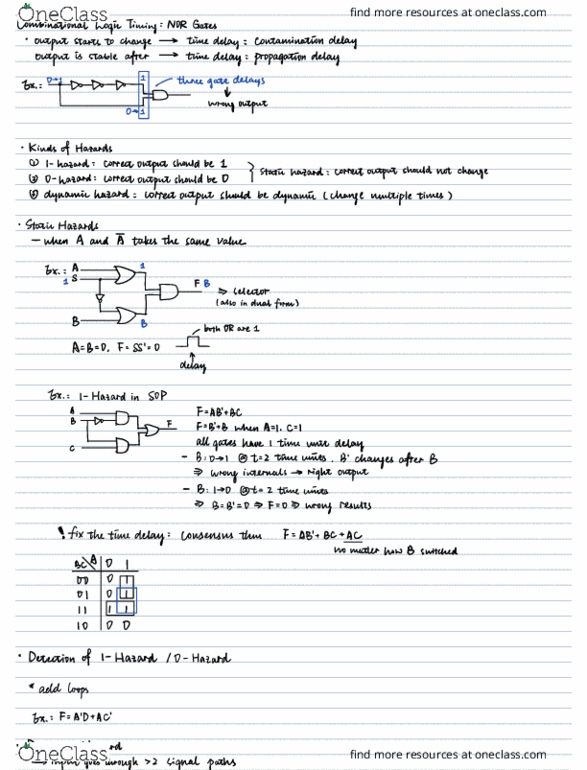 OneClass
find more resources at oneclass.com
Combinational Logic Timing: NOR Gates
· output starts to change → time delay: contamination delay
output is stable after → time delay: propagation delay
Ex.: 0→1
1
three gate delays
wrong output
0→1
· Kinds of Hazards
① 1-hazard: correct output should be 1
② 0-hazard: correct output should be 0
static hazard: correct output should not change
③ dynamic hazard: correct output should be dynamic (change multiple times)
· Static Hazards
- when A and A̅ takes the same value
Ex.: A
1 S
1
F B
⇒ selector
(also in dual form)
B
B
both OR are 1
A=B=0, F=SS'=0
delay
Ex.: 1-Hazard in SOP
A
B
C
F
F=AB'+BC
F=B'+B when A=1, C=1
all gates have 1 time unit delay
- B: 0→1 @t=2 time units, B' changes after B
⇒ wrong internals → right output
- B: 1→0 @t=2 time units
⇒ B=B'=0 ⇒ F=0 ⇒ wrong results
! fix the time delay: consensus thm F=AB'+BC+AC
no matter how B switched
BC\A 0 1
00 0 1
01 0 1
11 1 1
10 0 0
· Detection of 1-Hazard / 0-Hazard
* add loops
Ex.: F=A'D+AC'
→ input goes through >2 signal paths
OneClass
find more resources at oneclass.com